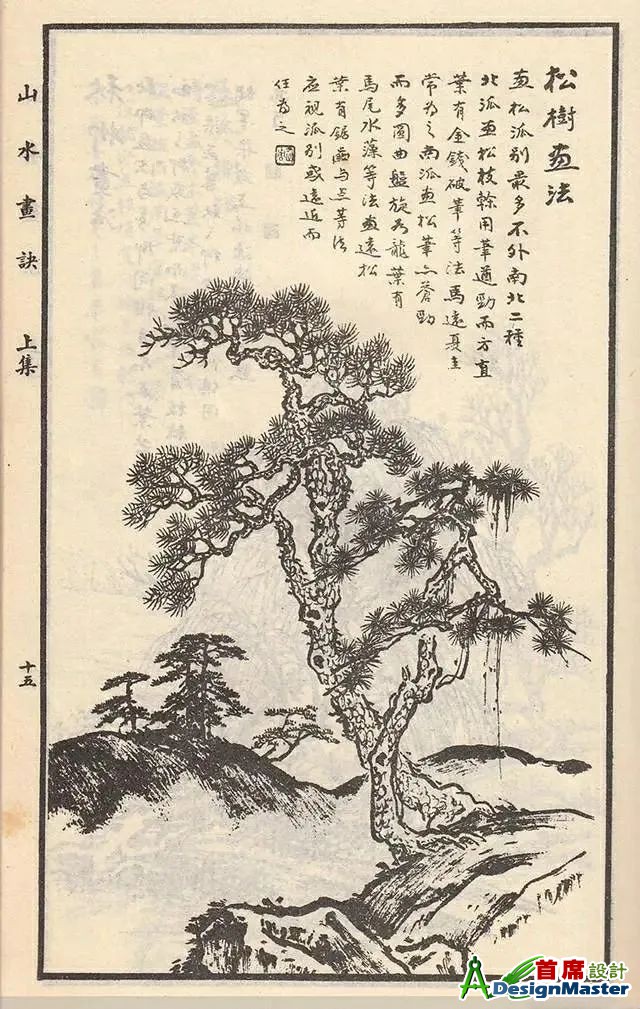 松樹畫法
畫松派別最多不外南北二種
北派畫松枝榦用筆遒勁而方直
葉有金錢破筆等法馬遠夏圭
常為之南派畫松筆亦蒼勁
而多圓曲盤旋如龍葉有
馬尾水藻等法畫遠松
葉有鋸齒与点等法
應視派別或遠近而
任為之
山水畫訣 上集
十五
首席設計
DesignMaster